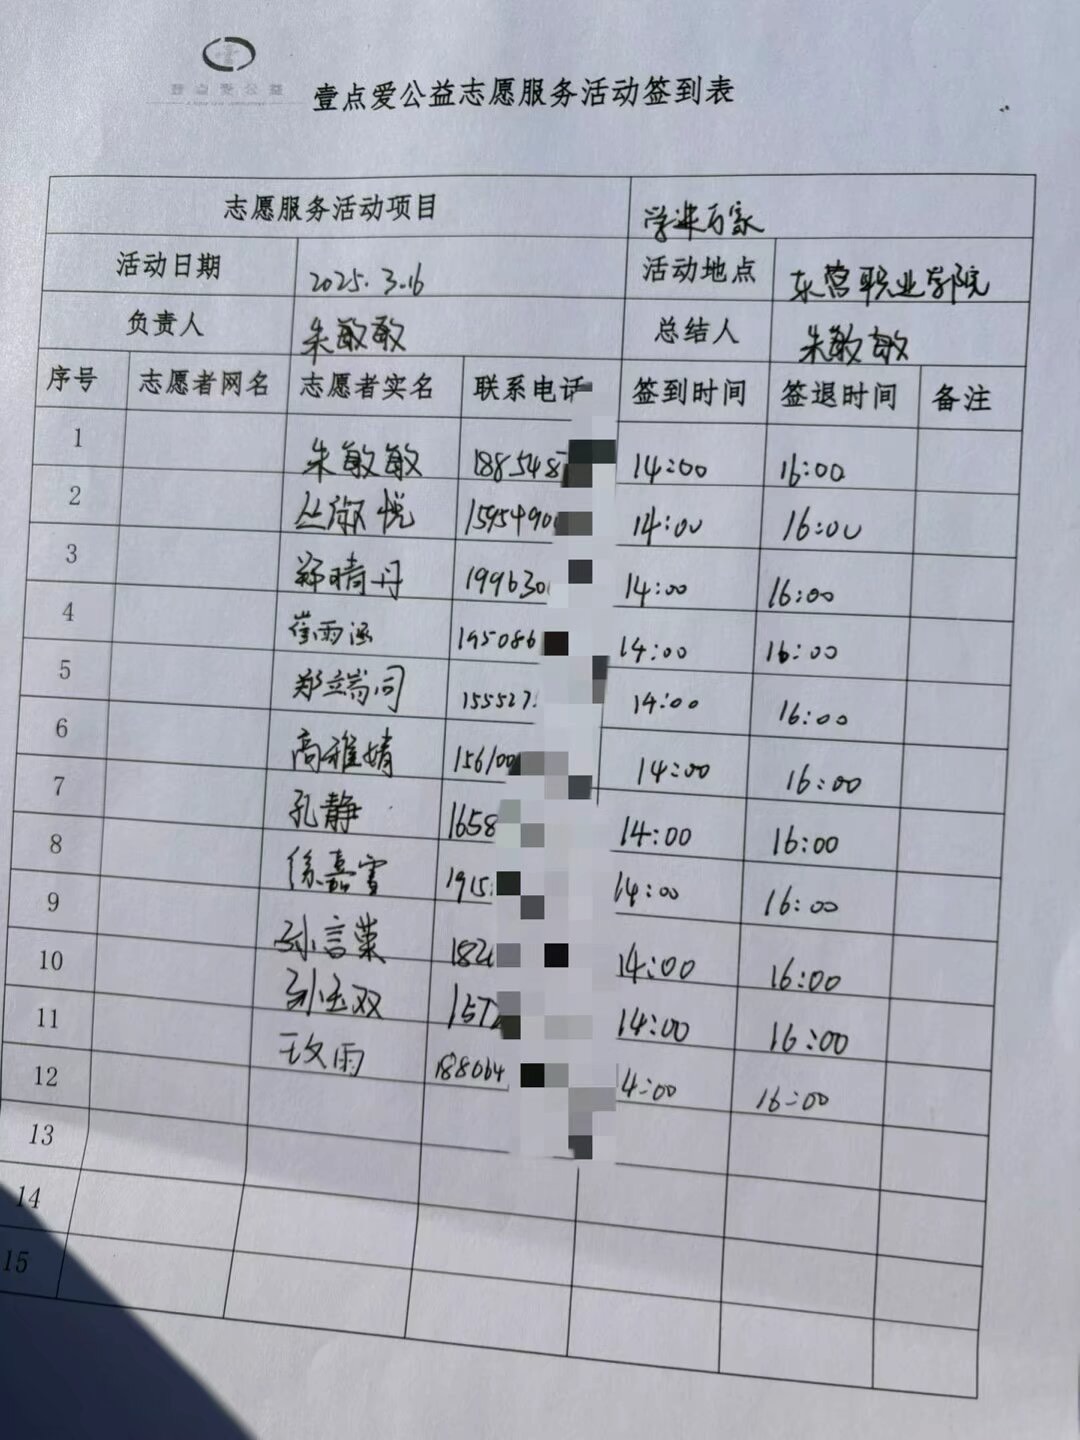 壹点爱公益
壹点爱公益志愿服务活动签到表
志愿服务活动项目 学进万家
活动日期 2025.3.16 活动地点 东营职业学院
负责人 朱敏敏 总结人 朱敏敏
序号 志愿者网名 志愿者实名 联系电话 签到时间 签退时间 备注
1 朱敏敏 188548 14:00 16:00
2 丛淑悦 1595490 14:00 16:00
3 郑晴丹 199630 14:00 16:00
4 崔雨涵 195086 14:00 16:00
5 郑端同 155527 14:00 16:00
6 高雅婧 156100 14:00 16:00
7 孔静 1658 14:00 16:00
8 徐嘉雪 1915 14:00 16:00
9 孙言菜 182 14:00 16:00
10 孙玉双 157 14:00 16:00
11 王文雨 188064 14:00 16:00
12
13
14
15